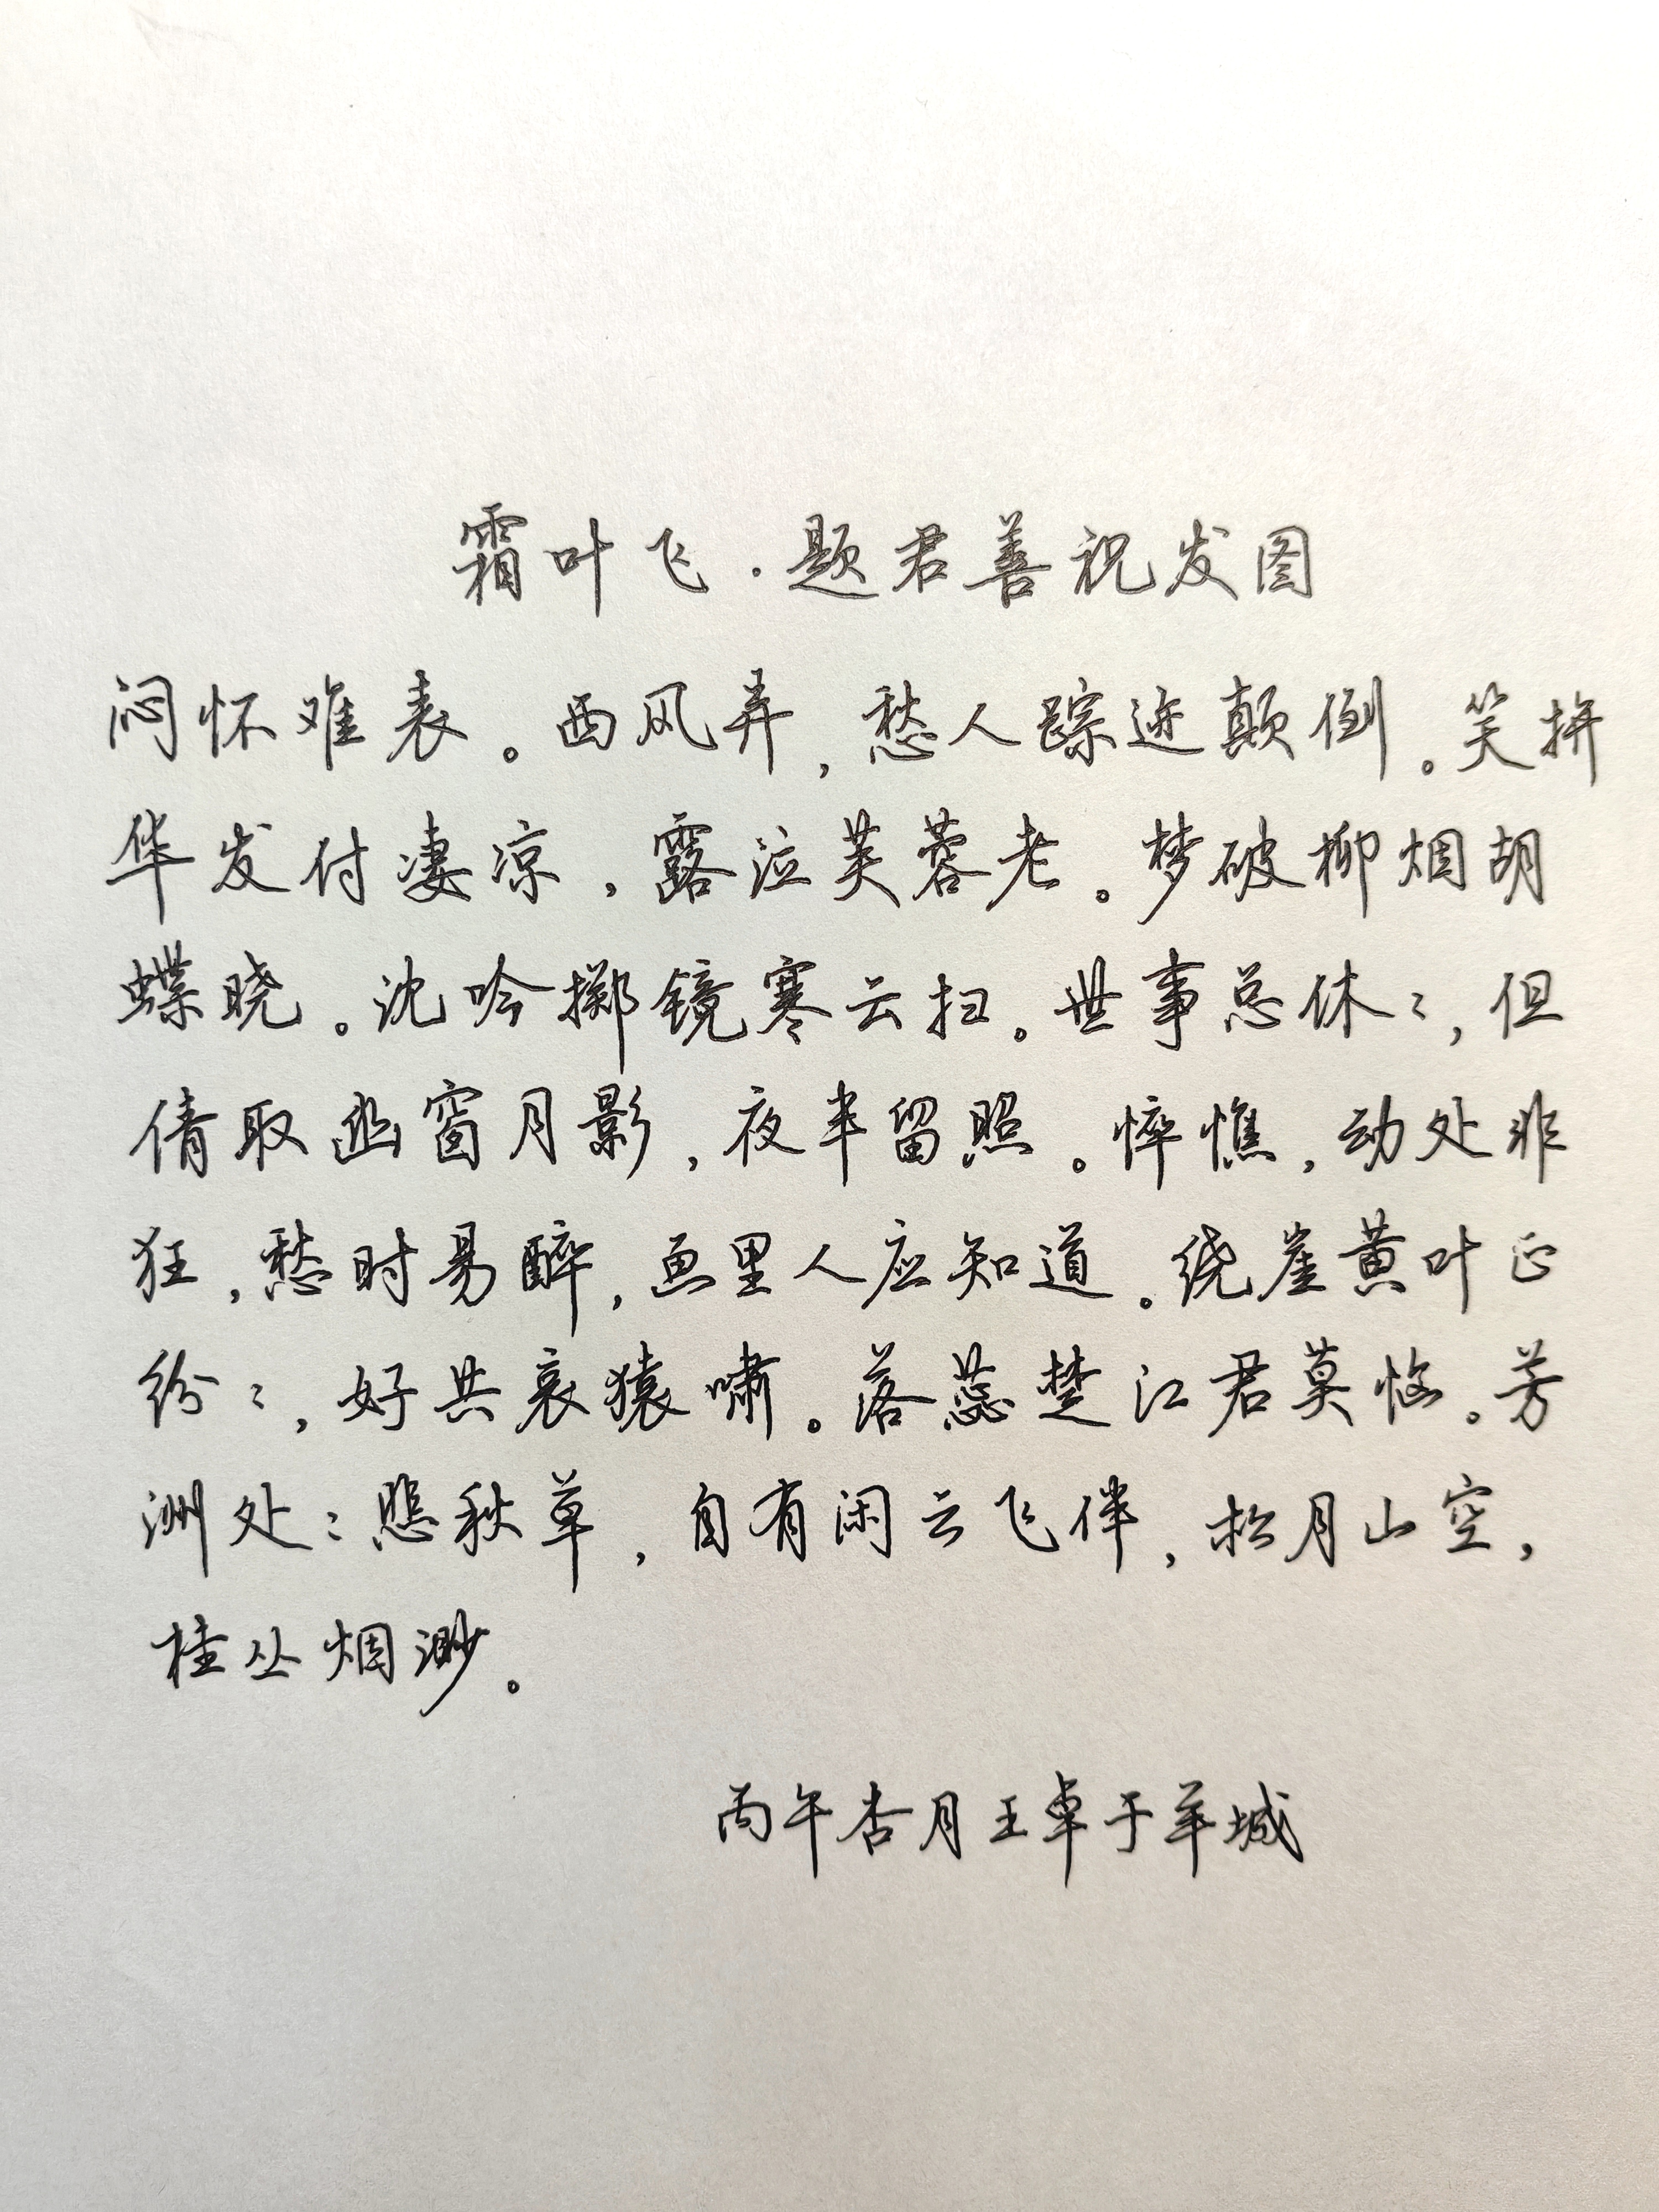 霜叶飞·题君善祝发图
闷怀难表。西风弄，愁人踪迹颠倒。笑拚
华发付凄凉，露泣芙蓉老。梦破柳烟胡
蝶晓。沈吟掷镜寒云扫。世事总休々，但
倩取幽窗月影，夜半留照。悴憔，动处非
狂，愁时易醉，画里人应知道。绕崖黄叶正
纷々，好共哀猿啸。落蕊楚江君莫恼。芳
洲处々悲秋草，自有闲云飞伴，松月山空，
桂丛烟渺。
丙午杏月王卓于羊城